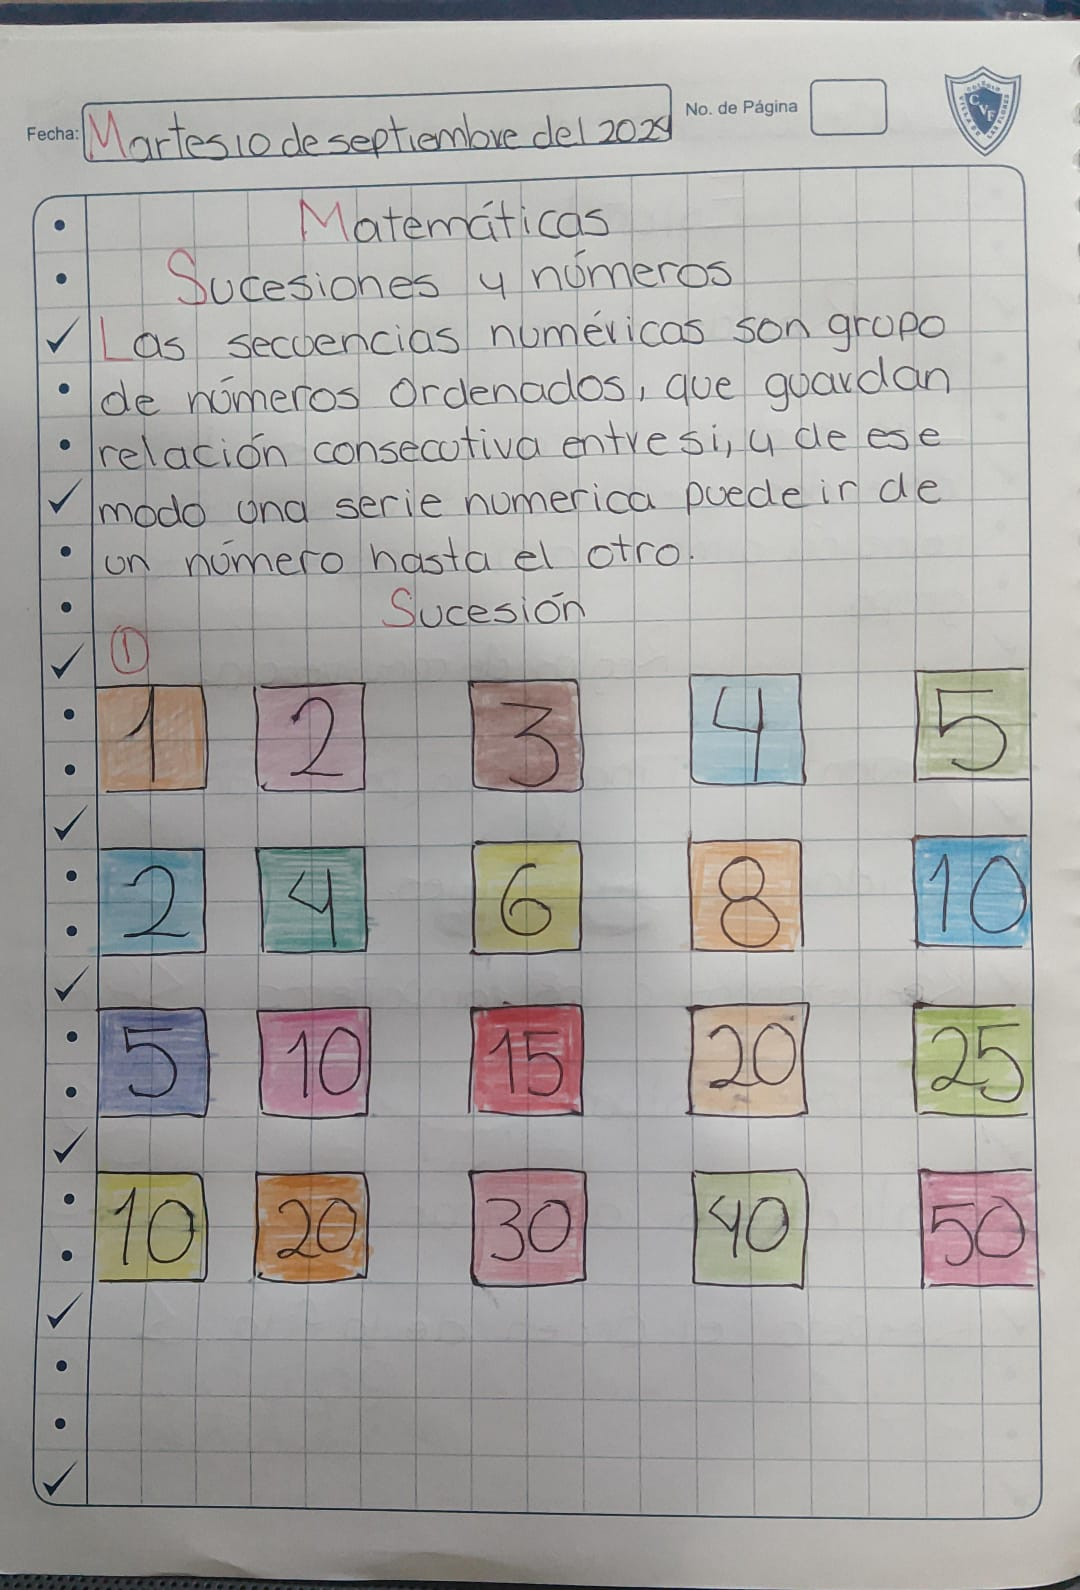 Fecha: Martes 10 de septiembre del 2024 No. de Página
COLEGIO VILLA DE LAS FLORES
CVF
Matemáticas
Sucesiones y números
Las secuencias numéricas son grupo
de números ordenados, que guardan
relación consecutiva entre si, y de ese
modo una serie numerica puede ir de
un número hasta el otro.
Sucesión
1
1 2 3 4 5
2 4 6 8 10
5 10 15 20 25
10 20 30 40 50